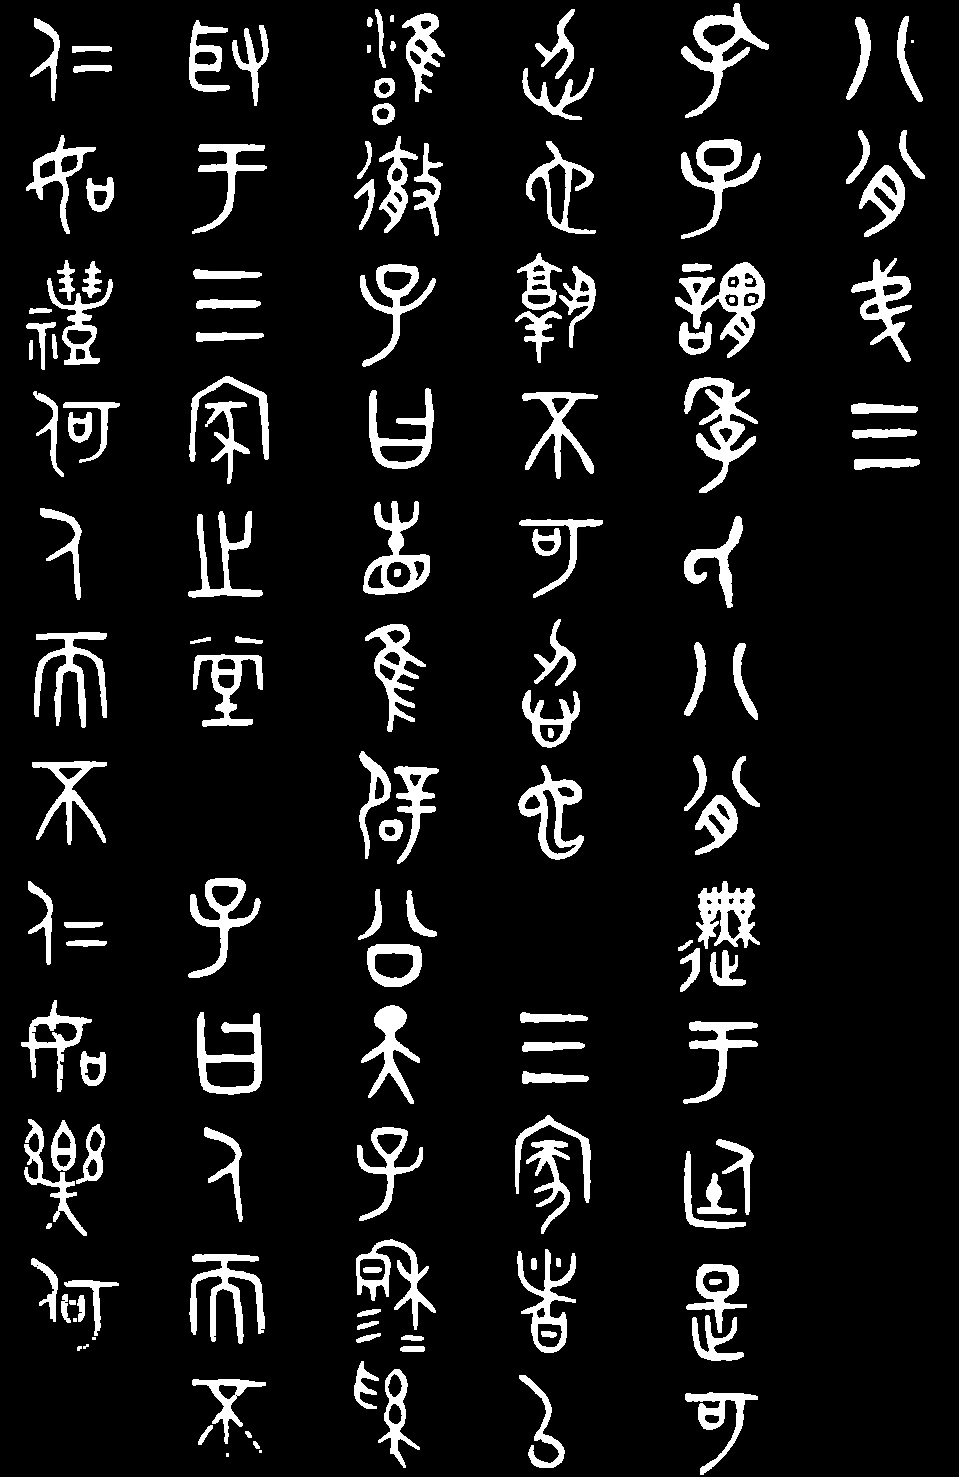 八佾弟三
孔子謂季氏八佾舞于廷是可
忍也孰不可忍也 三家者以
雍徹子曰相隹辟公天子穆穆奚
取于三家之堂 子曰人而不
仁如禮何人而不仁如樂何